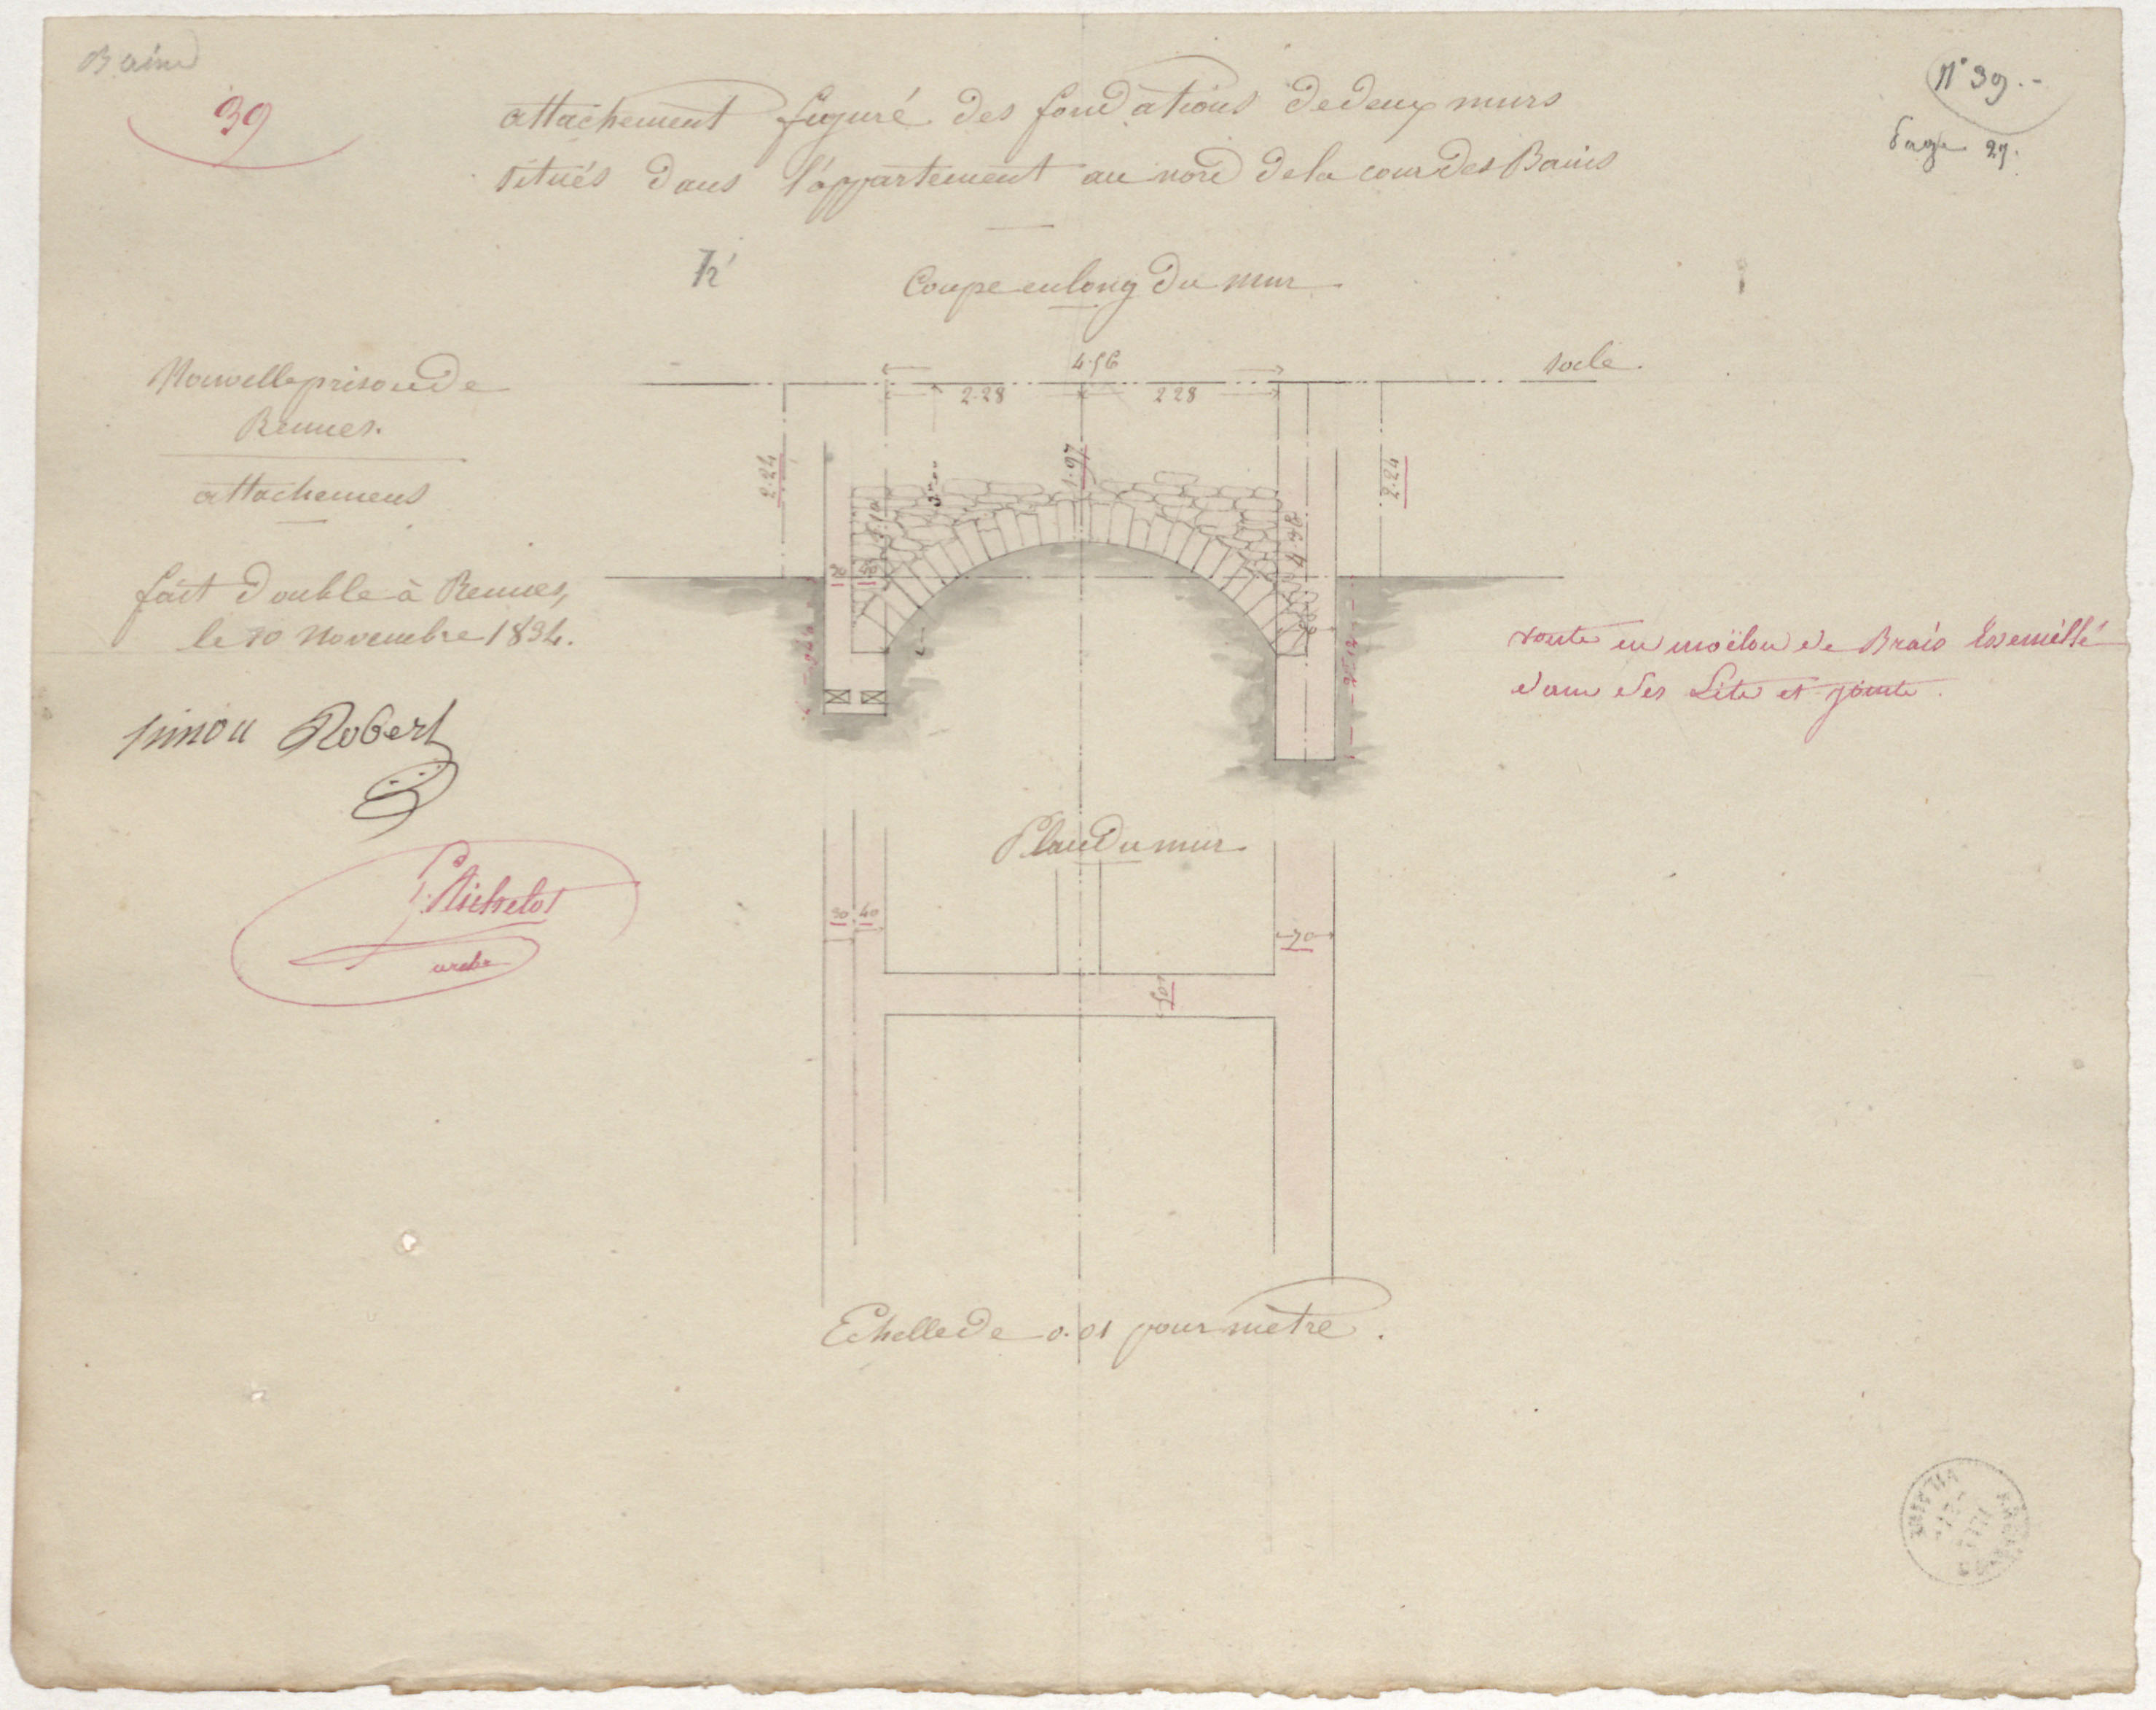 Bains
39
N° 39.-
Page 27.
attachement figuré des fondations de deux murs
situés dans l'appartement au nord de la cour des Bains
Coupe en long du mur
Nouvelle prison de
Rennes.
attachement
fait double à Rennes,
le 10 Novembre 1894.
simon Robert
archte
socle.
4.56
2.28 2.28
2.24
1.97
2.24
voute en moëlon de Brais Essemillé
dans des Lits et joints.
Plan du mur
30 40
70
50
Echelle de 0.01 pour mètre.